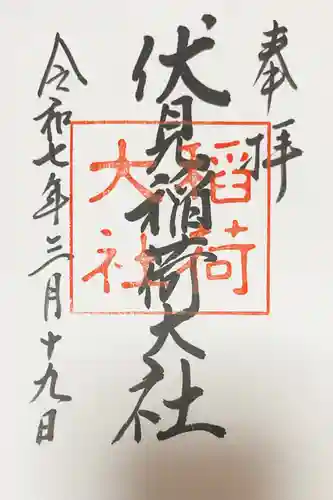 奉拝
伏見稲荷大社
稲荷
大社
令和七年三月十九日